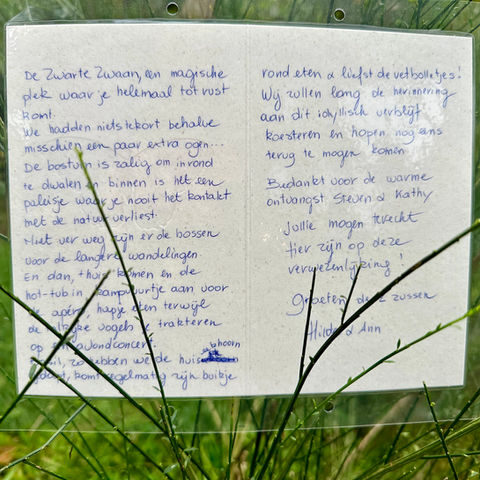 De Zwarte Zwaan, een magische
plek waar je helemaal tot rust
komt.
We hadden niets tekort behalve
misschien een paar extra ogen...
De bostuin is zalig om in rond
te dwalen en binnen is het een
paleisje waar je nooit het kontakt
met de natuur verliest.
Niet ver weg zijn er de bossen
voor de langere wandelingen
En dan, thuis komen en de
hot-tub in, kampvuurtje aan voor
de apero, hapje eten terwijl
de vogels je trakteren
op avondconcert.
zo hebben we de huis
hoorn
komt regelmatig zijn buikje
rond eten & liefst de vetbolletjes!
Wij zullen lang de herinnering
aan dit idyllisch verblijf
koesteren en hopen nog eens
terug te mogen komen
Bedankt voor de warme
ontvangst Steven & Kathy
Jullie mogen terecht
fier zijn op deze
verwezenlijking!
Groeten de 2 zussen
Hilde & Ann